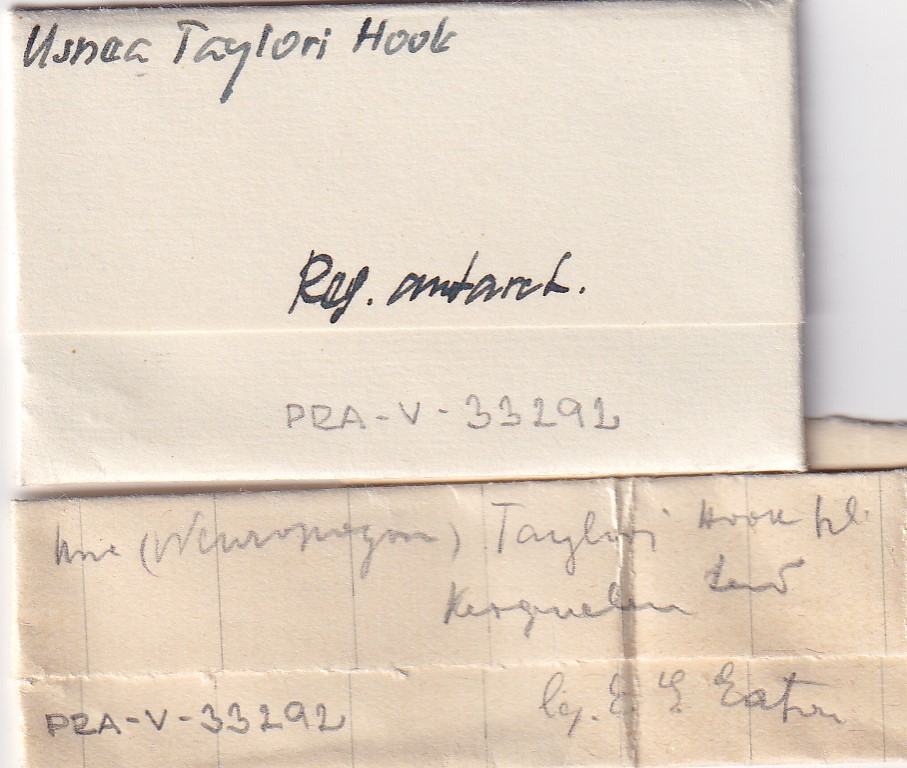 Usnea Taylori Hook
Reg. antarct.
PRA-V-33292
(Neuropogon) Taylori Hook fil.
Kerguelen
PRA-V-33292
lg. E. Eaton